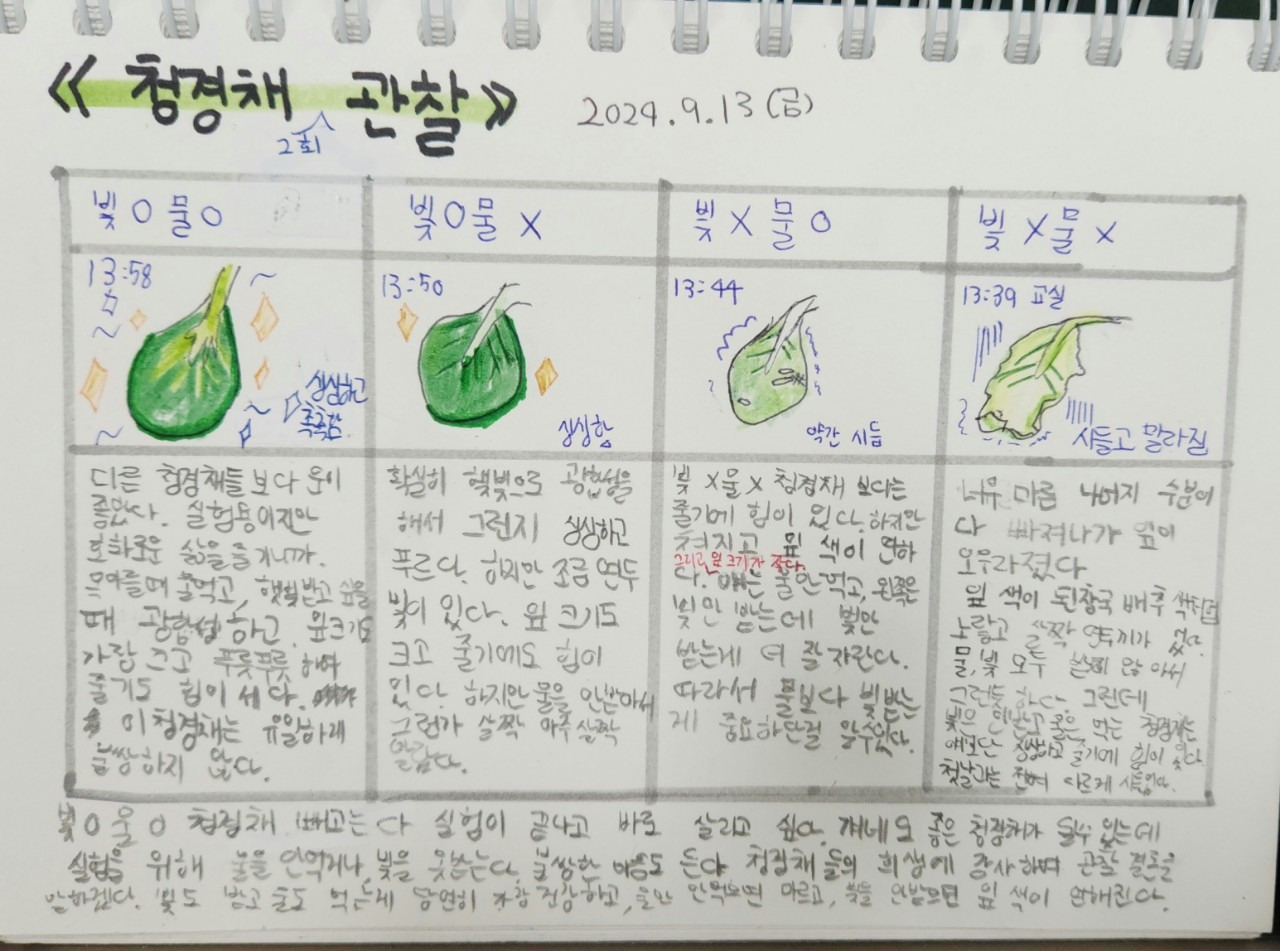 《 청경채 관찰 》 2024.9.13 (금)
2회
빛 O 물 O
13:58
싱싱하고
촉촉함
다른 청경채들보다 운이
좋았다. 실험용이지만
호화로운 삶을 즐기니까.
목마를때 물먹고, 햇빛받고 싶을
때 광합성 하고. 잎크기도
가장 크고 푸릇푸릇 하며
줄기도 힘이 세다.
이 청경채는 유일하게
불쌍하지 않다.
빛 O 물 X
13:50
싱싱함
확실히 햇빛으로 광합성을
해서 그런지 싱싱하고
푸르다. 하지만 조금 연두
빛이 있다. 잎 크기도
크고 줄기에도 힘이
있다. 하지만 물을 안받아서
그런가 살짝 아주 살짝
말랐다.
빛 X 물 O
13:44
약간 시듦
빛 X 물 X 청경채 보다는
줄기에 힘이 있다. 하지만
쳐지고 잎 색이 연하
그리고 잎 크기가 작다.
다. 얘는 물만 먹고, 왼쪽은
빛만 받는데 빛만
받는게 더 잘 자란다.
따라서 물보다 빛받는
게 중요하단걸 알수있다.
빛 X 물 X
13:39 교실
시들고 말라짐
너무 마름 나머지 수분이
다 빠져나가 잎이
오우라졌다
잎 색이 된장국 배추 색처럼
노랗고 살짝 연두끼가 있다.
물, 빛 모두 않아서
그런듯 하다. 그런데
빛은 안받고 물은 먹는 청경채는
얘보단 싱싱하고 줄기에 힘이 있다.
첫날과는 전혀 다르게 시들었다.
빛 O 물 O 청경채 빼고는 다 실험이 끝나고 바로 살리고 싶다. 걔네도 좋은 청경채가 될수 있는데
실험을 위해 물을 안먹거나, 빛을 못쐈다. 불쌍한 마음도 든다 청경채들의 희생에 감사하며 관찰 결론을
말하겠다. 빛도 받고 물도 먹는게 당연히 가장 건강하고, 물만 안먹으면 마르고, 빛을 안받으면 잎 색이 연해진다.